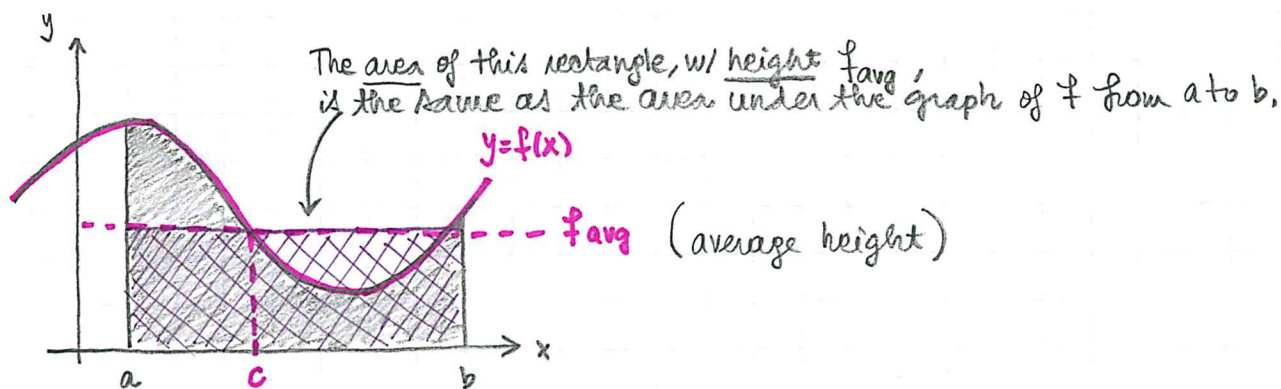 y
The area of this rectangle, w/ height favg,
is the same as the area under the graph of f from a to b.
y=f(x)
favg (average height)
x
a c b